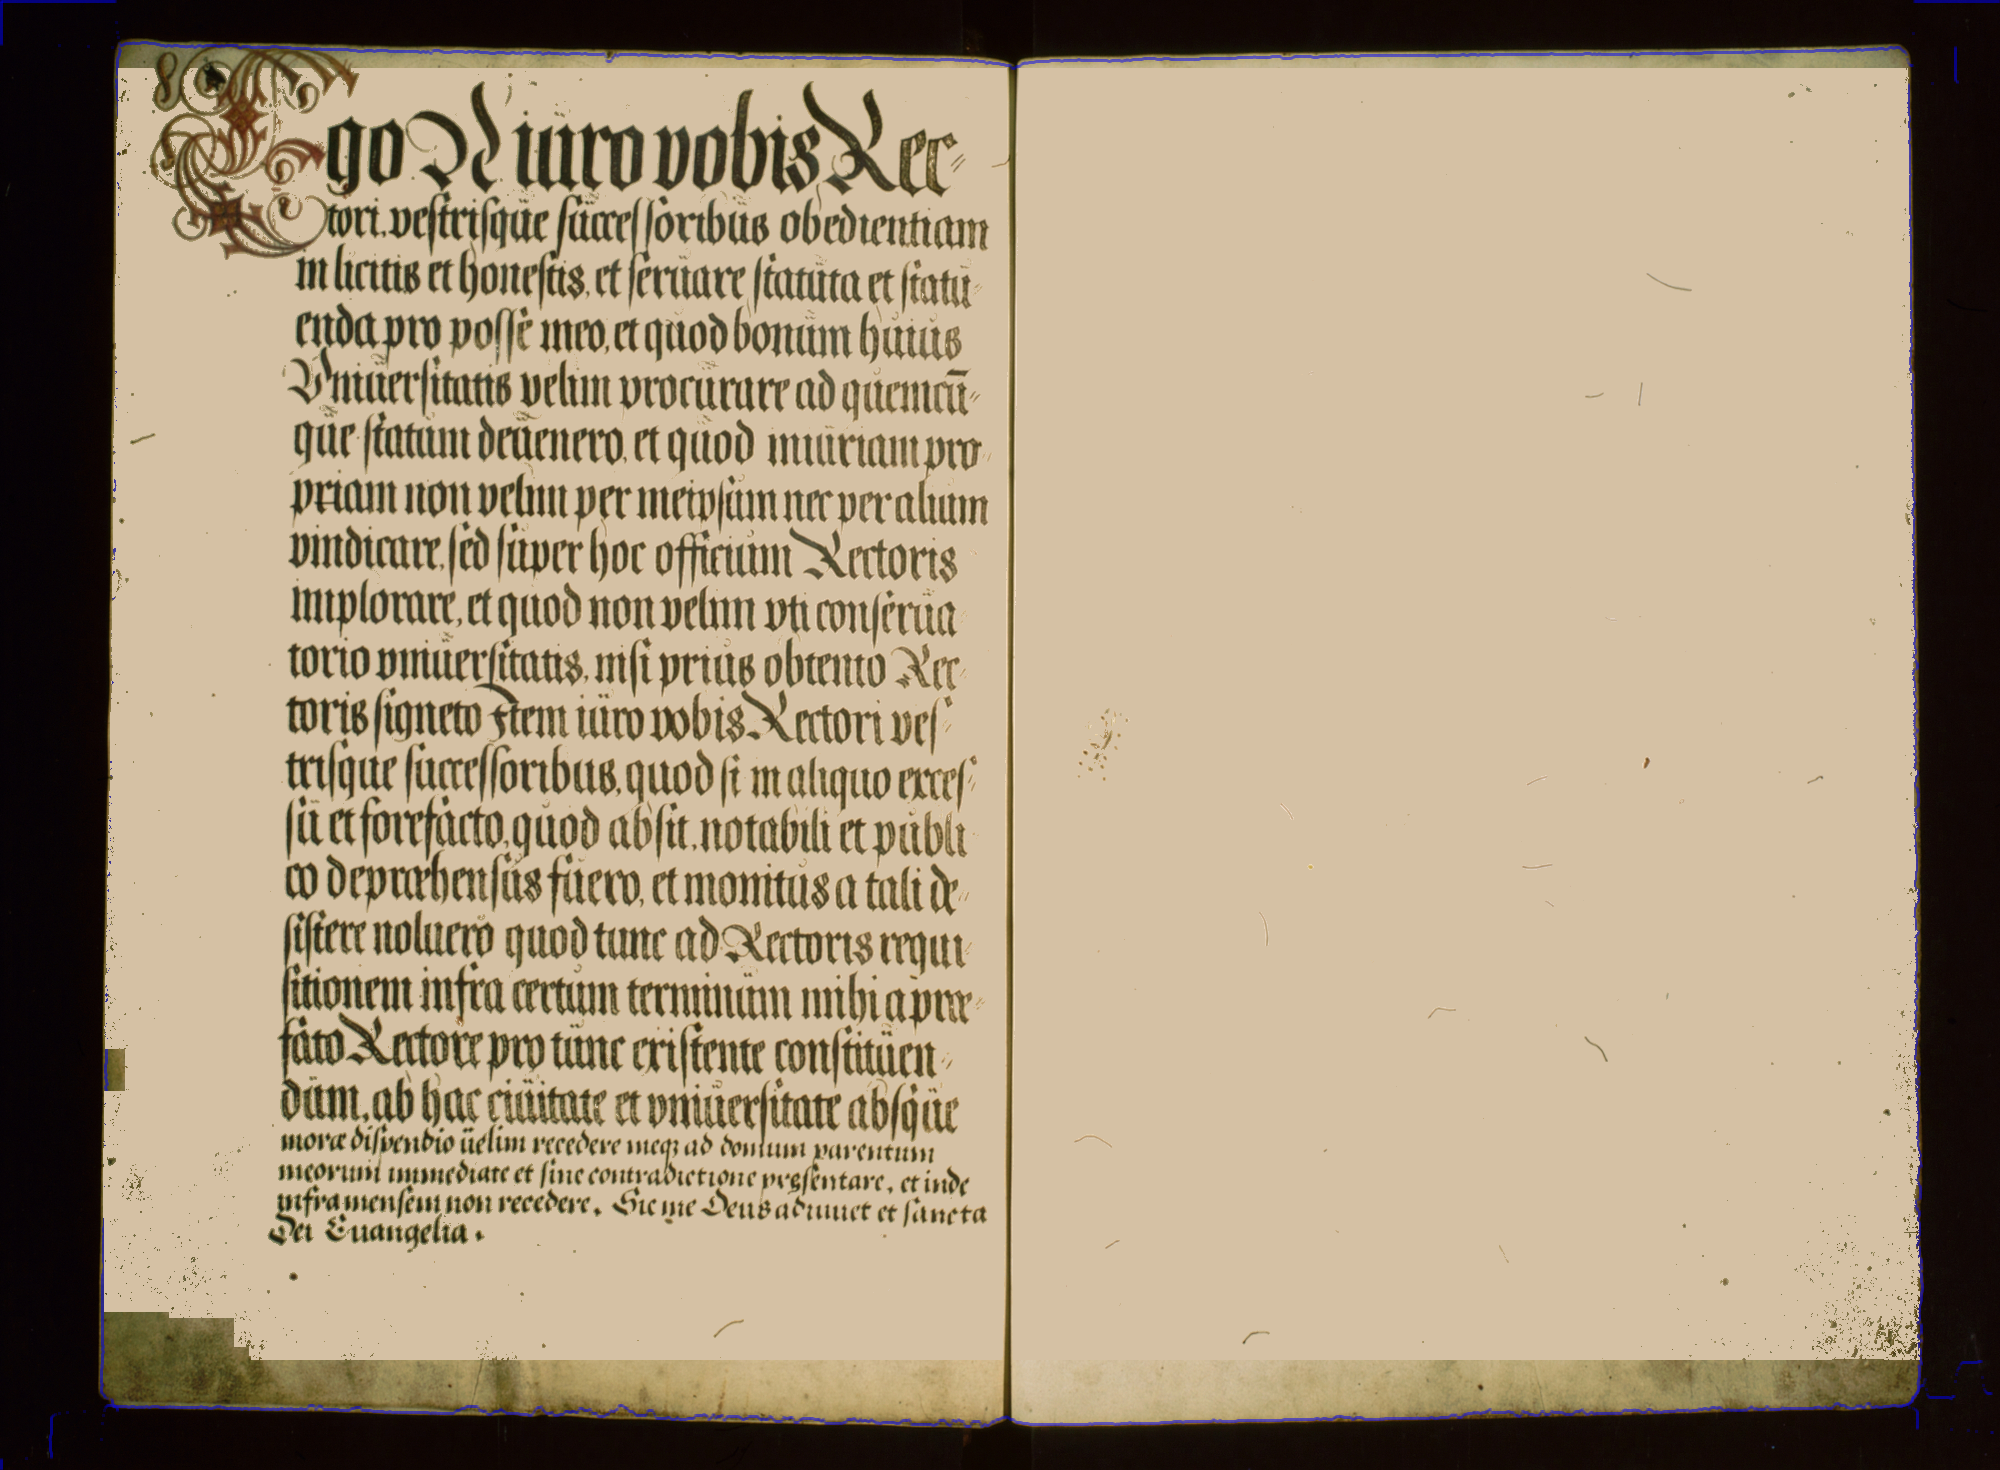 Ego N iuro vobis Rec⸗
tori, vestrisque successoribus obedientiam
in licitis et honestis, et seruare statuta et statu⸗
enda pro posse meo, et quod bonum huius
Vniuersitatis velim procurare ad quemcū⸗
que statum deuenero, et quod iniuriam pro⸗
priam non velim per meipsum nec per alium
vindicare, sed super hoc officium Rectoris
implorare, et quod non velim vti conserua⸗
torio vniuersitatis, nisi prius obtento Rec⸗
toris signeto Item iuro vobis Rectori ves⸗
trisque successoribus, quod si in aliquo exces⸗
su et forefacto, quod absit, notabili et publi
co depræhensus fuero, et monitus a tali de⸗
sistere noluero quod tunc ad Rectoris requi⸗
sitionem infra certum terminum mihi a præ⸗
fato Rectore pro tunc existente constituen⸗
dum, ab hac ciuitate et vniuersitate absque
moræ dispendio uelim recedere meqꝫ ad domum parentum
meorum immediate et sine contradictione pręsentare, et inde
infra mensem non recedere. Sic me Deus adiuuet et sancta
Dei Euangelia.